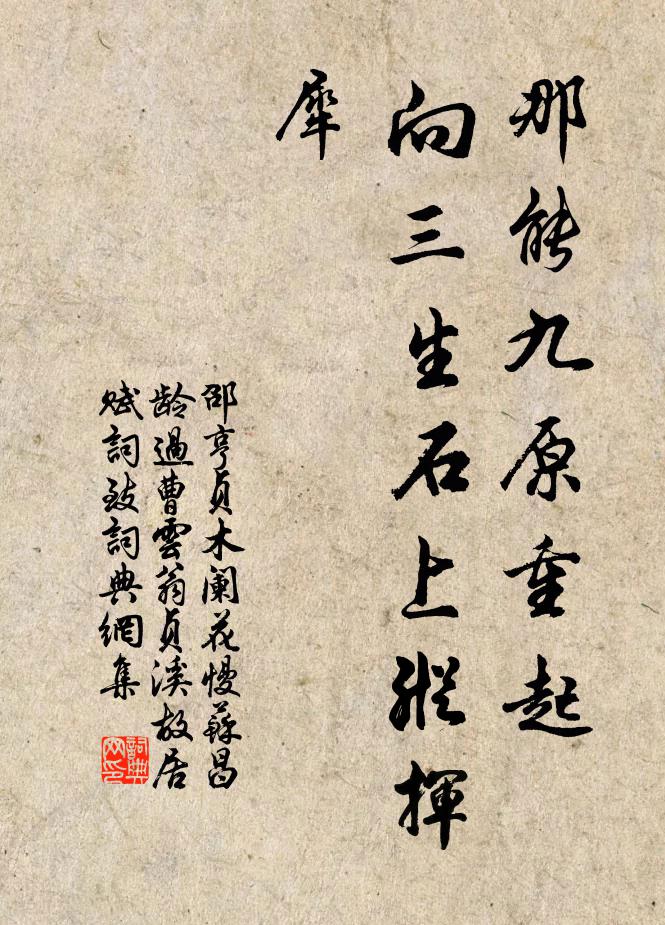 那能九原重起
向三生石上縱揮
犀
邵亨貞木闌花慢蘇昌
龄過曹雲翁貞溪故居
赋詞致詞典網集
詞典
网印